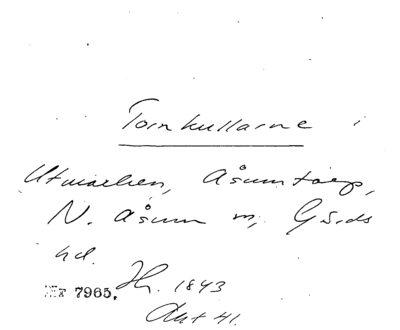 Tornkullarne i
Utmarken, Åsumtorp,
N. Åsum sn, Gärds
hd.
7965. Hr. 1843
Akt 41.